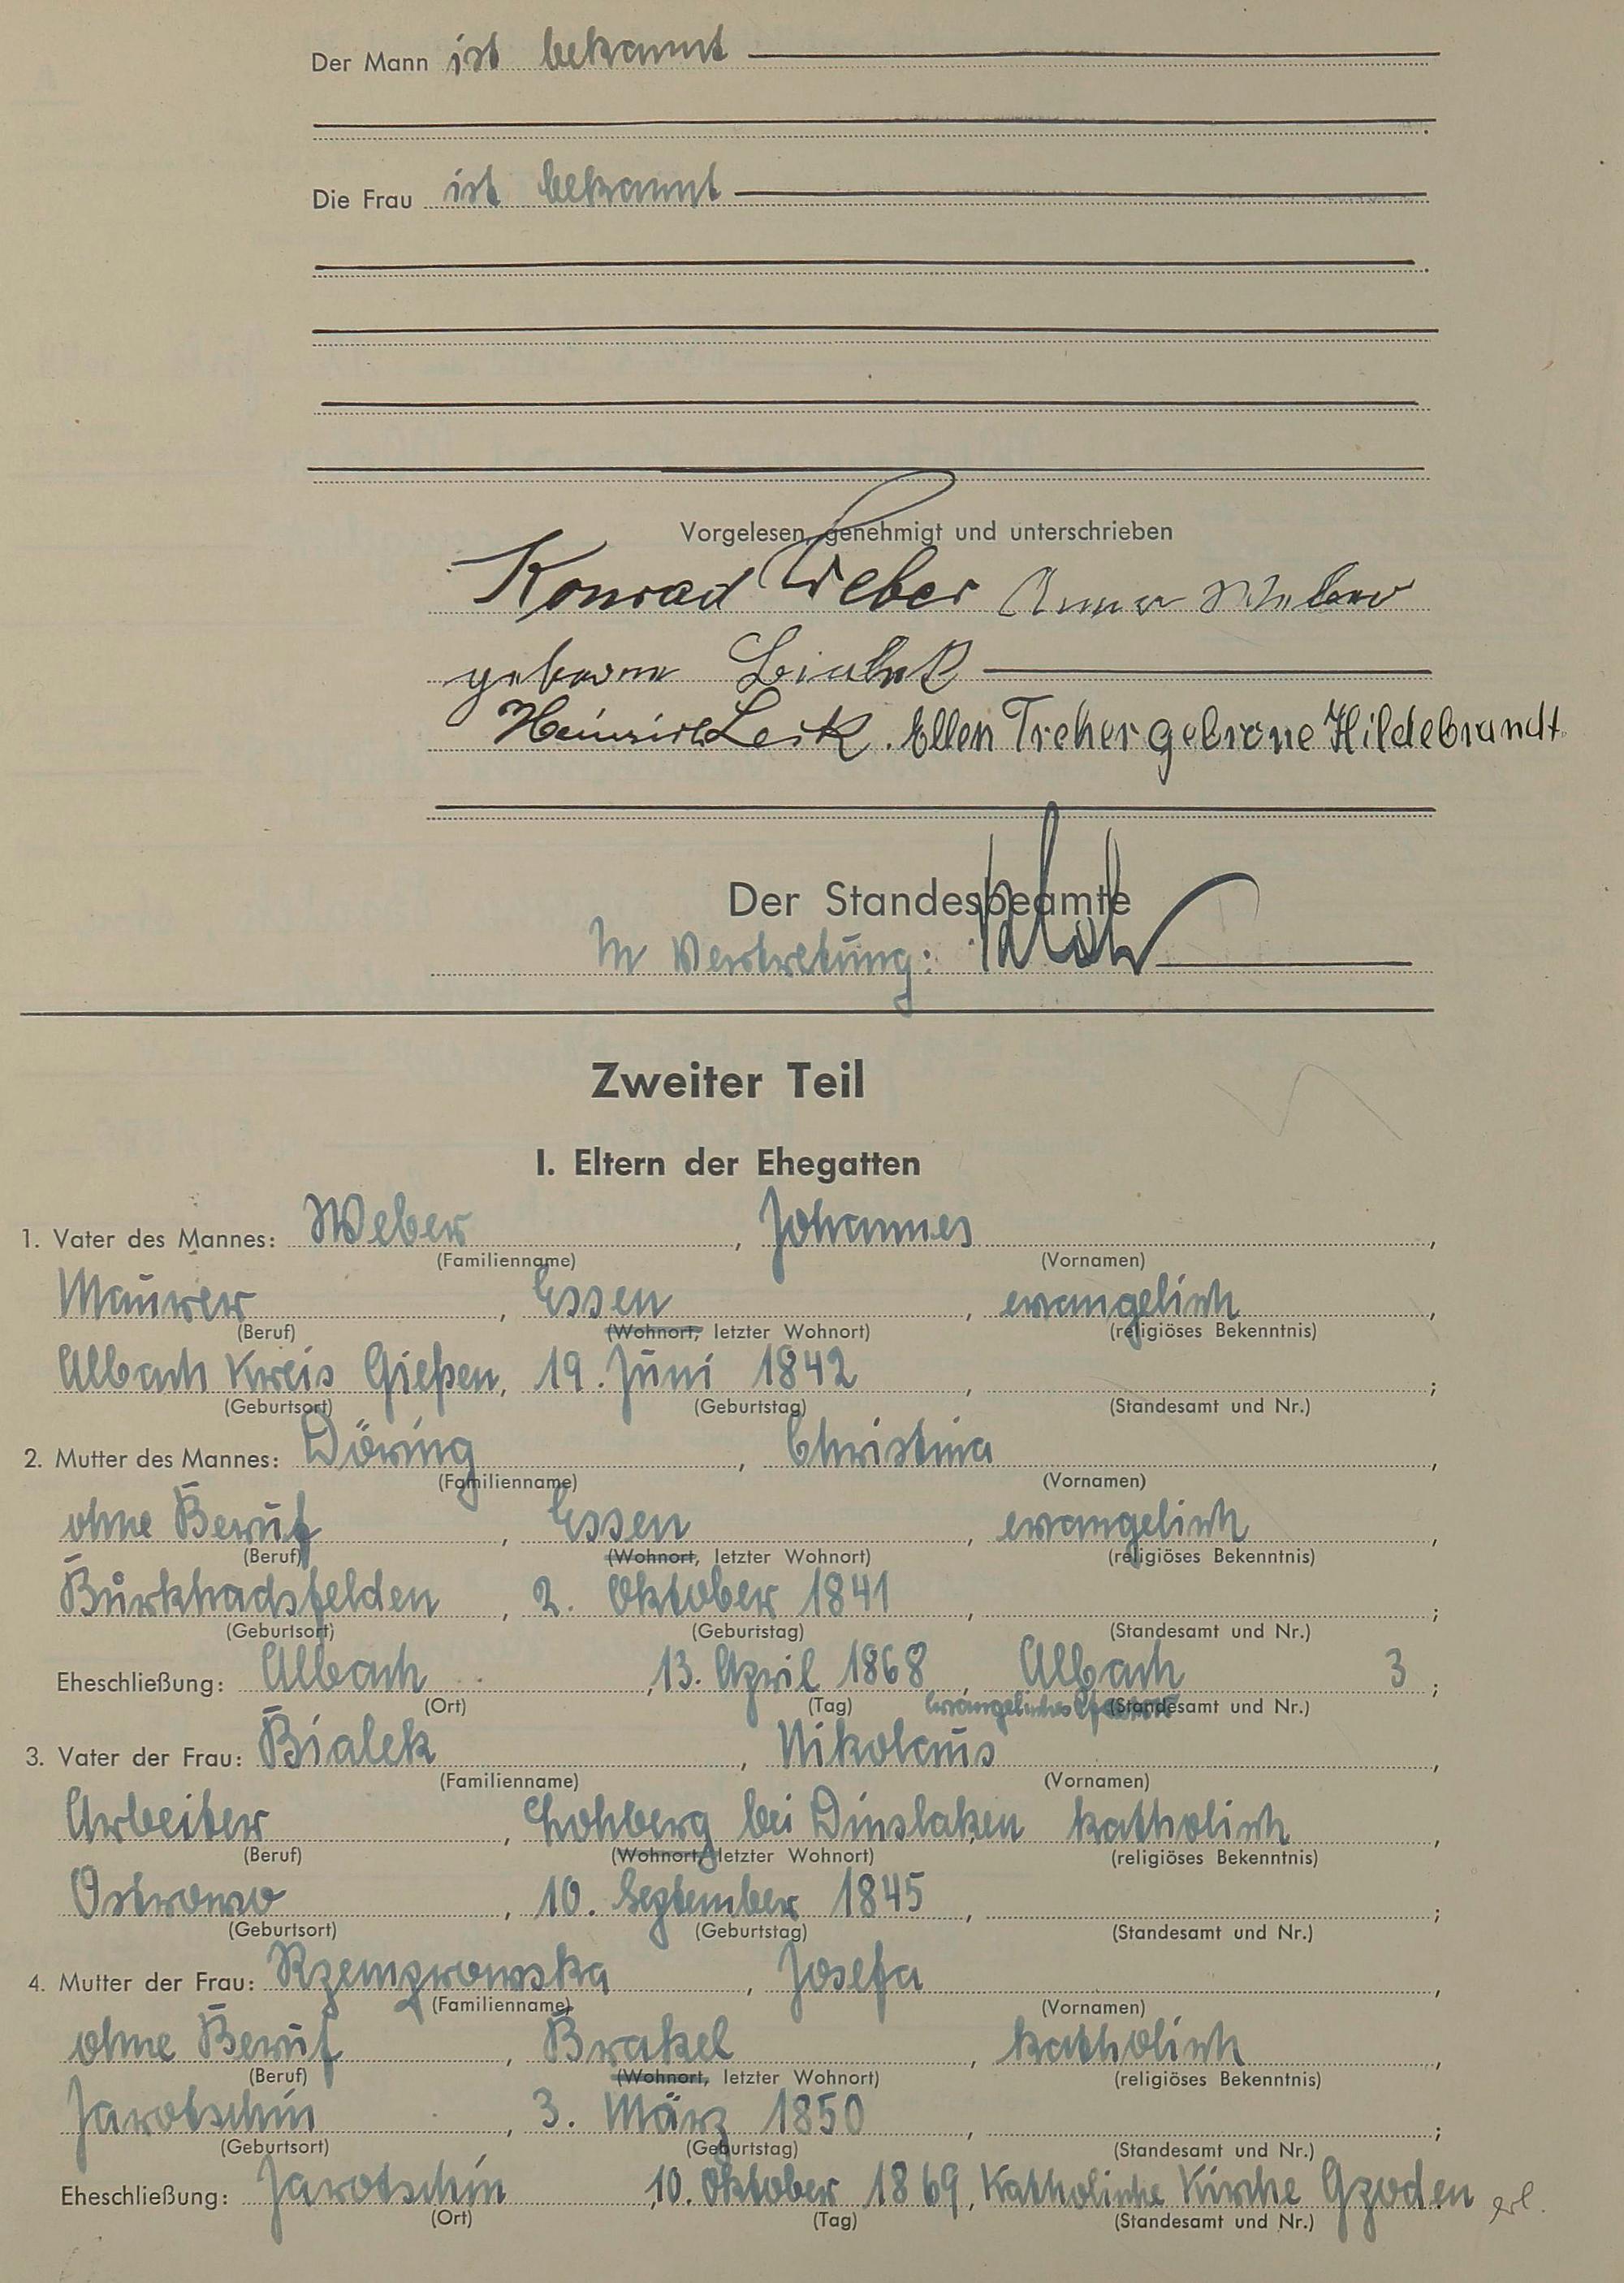 Der Mann ist bekannt
Die Frau ist bekannt
Vorgelesen, genehmigt und unterschrieben
Konrad Weber Anna Weber
geborne Bialek
Heinrich Leik. Ellen Treher geborne Hildebrandt
Der Standesbeamte
In Vertretung:
Zweiter Teil
I. Eltern der Ehegatten
1. Vater des Mannes: Weber, Johannes,
(Familienname) (Vornamen)
Maurer, Essen, evangelisch,
(Beruf) (Wohnort, letzter Wohnort) (religiöses Bekenntnis)
Albach Kreis Gießen, 19. Juni 1842, ;
(Geburtsort) (Geburtstag) (Standesamt und Nr.)
2. Mutter des Mannes: Döring, Christina,
(Familienname) (Vornamen)
ohne Beruf, Essen, evangelisch,
(Beruf) (Wohnort, letzter Wohnort) (religiöses Bekenntnis)
Burkhadsfelden, 2. Oktober 1841, ;
(Geburtsort) (Geburtstag) (Standesamt und Nr.)
Eheschließung: Albach, 13. April 1868, Albach 3;
(Ort) (Tag) evangelisches (Standesamt und Nr.)
3. Vater der Frau: Bialek, Nikolaus,
(Familienname) (Vornamen)
Arbeiter, Lohberg bei Dinslaken katholisch,
(Beruf) (Wohnort, letzter Wohnort) (religiöses Bekenntnis)
Ostrowo, 10. September 1845, ;
(Geburtsort) (Geburtstag) (Standesamt und Nr.)
4. Mutter der Frau: Rzemprowska, Josefa,
(Familienname) (Vornamen)
ohne Beruf, Brakel, katholisch,
(Beruf) (Wohnort, letzter Wohnort) (religiöses Bekenntnis)
Jarotschin, 3. März 1850, ;
(Geburtsort) (Geburtstag) (Standesamt und Nr.)
Eheschließung: Jarotschin, 10. Oktober 1869, Katholische Kirche Gzoden erl.
(Ort) (Tag) (Standesamt und Nr.)